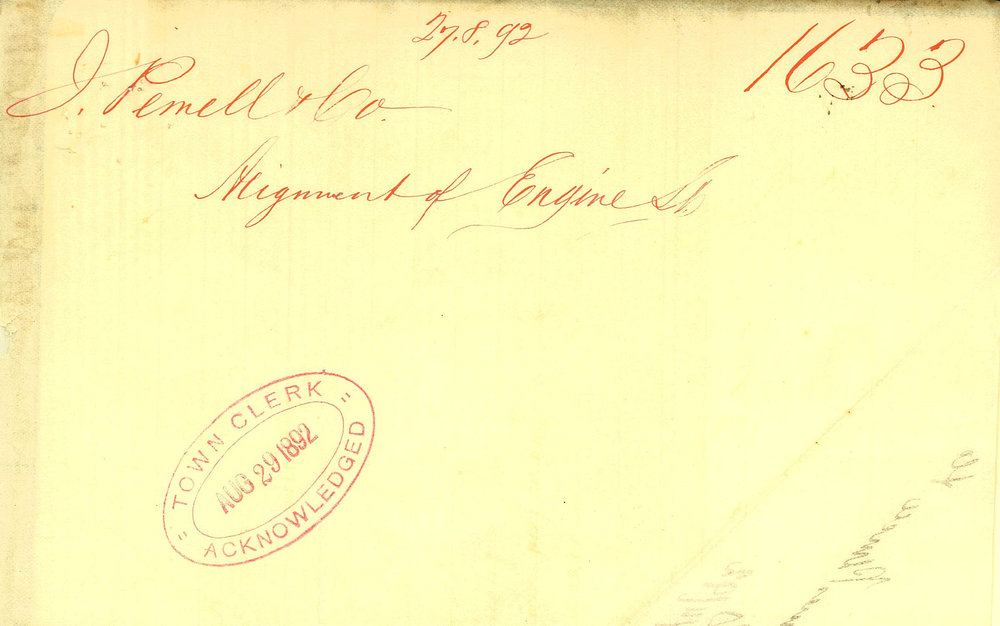 27.8.92
1633
J. Pemell & Co.
Alignment of Engine St.
TOWN CLERK
AUG 29 1892
ACKNOWLEDGED